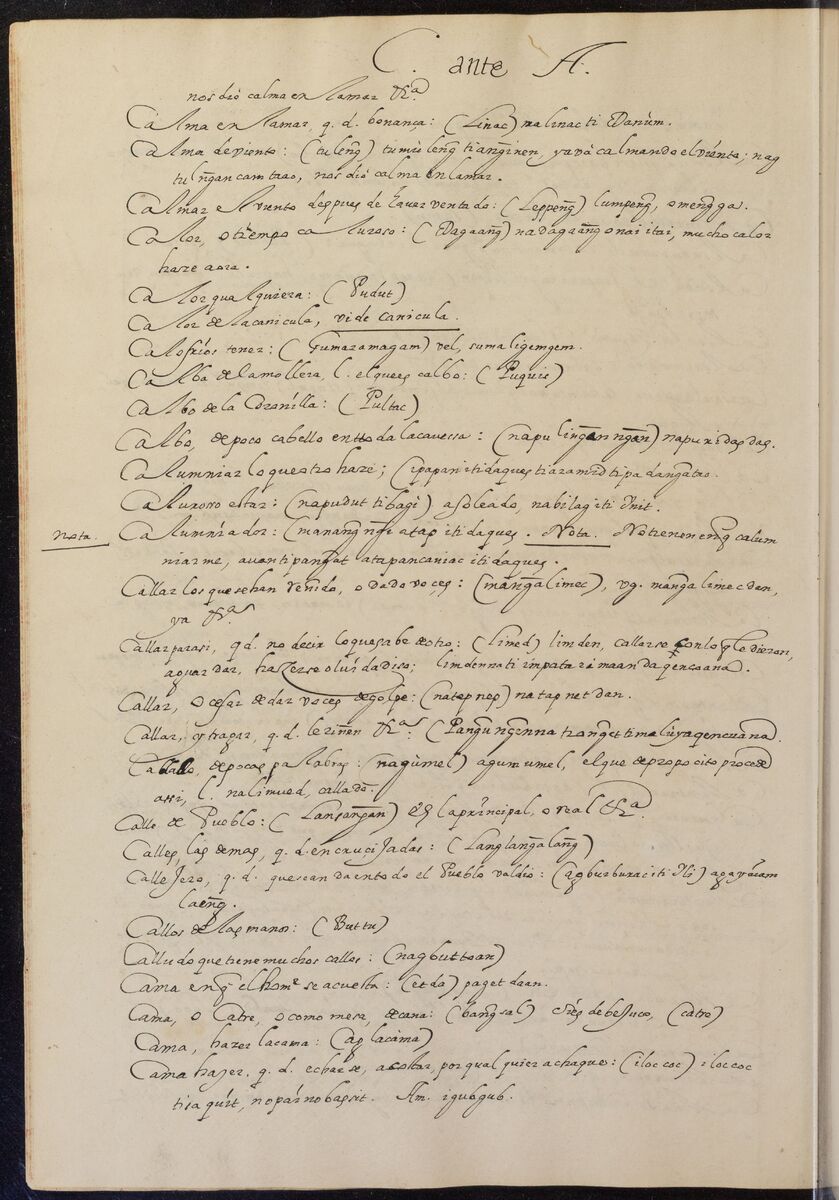 C. ante A.
nos dió calma en llamar &ra
Calma en llamar, q. d. bonança: (Linac) malinac ti Danúm.
Calma de viento: (tuleng) tumúleng ti anginen, ya và calmando el viento; nag
tulngan cam tao, nos dió calma en lamar.
Calmar el viento despues de haver ventado: (Leppeng) lumpeng, o mengga.
Calor, o tiempo caluroso: (Dagaang) nadagaang onai itai, mucho calor
haze aora.
Calor qualquiera: (Pudut)
Calor de la canicula, vide canicula.
Calofríos tener: (Gumaramagam) vel, sumaligemgem.
Calba de la mollera, l. el que es calbo: (Puquis)
Calbo de la Coranilla: (Pultac)
Calbo, de poco cabello en tto da la cavessa: (napulingan ngan) napuridasdas.
Calumniar lo que otro haze; (ipapan iti daques ti aramid ti padangatao.
Caluroso estar: (napudut ti bagi) asoleado, nabilag iti Init.
Nota. Calumniador: (manangngi atap iti daques. Nota. No tienen en q calum
niarme, auan ti pangat atapan caniac iti daques.
Callar los que se han reñido, o dado voçes: (mangalimec), vg. mangalimec dan,
ya &ra
Callar para si, q d. no decir lo que sabe de otro: (limed) limden, callarse con lo q le dieron,
aguardar, hazerse olvidadiso; limdenna ti impatarimaanda qencoana.
Callar, o cesar de dar voces de golpe: (natepnep) natapnet dan.
Callar, y tragar, q. d. le riñen &ra (Pangungenna tranget ti maliyaqencuana.
Callado, de pocas palabras: (nagúmel) agumumel, el que de proposito procede
assi, l. nalimed, callado.
Calle de Pueblo: (Lansangan) Es la principal, o real &ra.
Calles, las demas, q. d. encrucijadas: (Langlangalang)
Callejero, q. d. que se anda en todo el Pueblo valdio: (agburburac iti Ili) agayáyam
laeng.
Callos de las manos: (Buttu)
Calludo que tiene muchos callos: (nagbuttoan)
Cama en q el home se acuesta: (etda) pagetdaan.
Cama, o Catre, o como mesa, de cana: (bangsal) si es de bejuco, (catre)
Cama, hazer la cama: (aplacama)
Cama hazer, q. d. echarse, acostar, por qual quier achaque: (iloc coc) iloc coc
ti saquit, no pár no bassit. Im. igubgub.